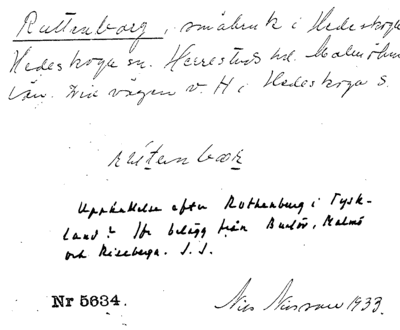 Ruttenborg, småbruk i Hedeskoga
Hedeskoga sn. Herrestads hd. Malmöhus
län. Vid vägen v. H i Hedeskoga s.
Uppkallelse efter Rothenburg i Tysk-
land? Jfr belägg från Burlöv, Malmö
och Riseberga. S. S.
Nr 5634.
Nils Nilsson 1933.